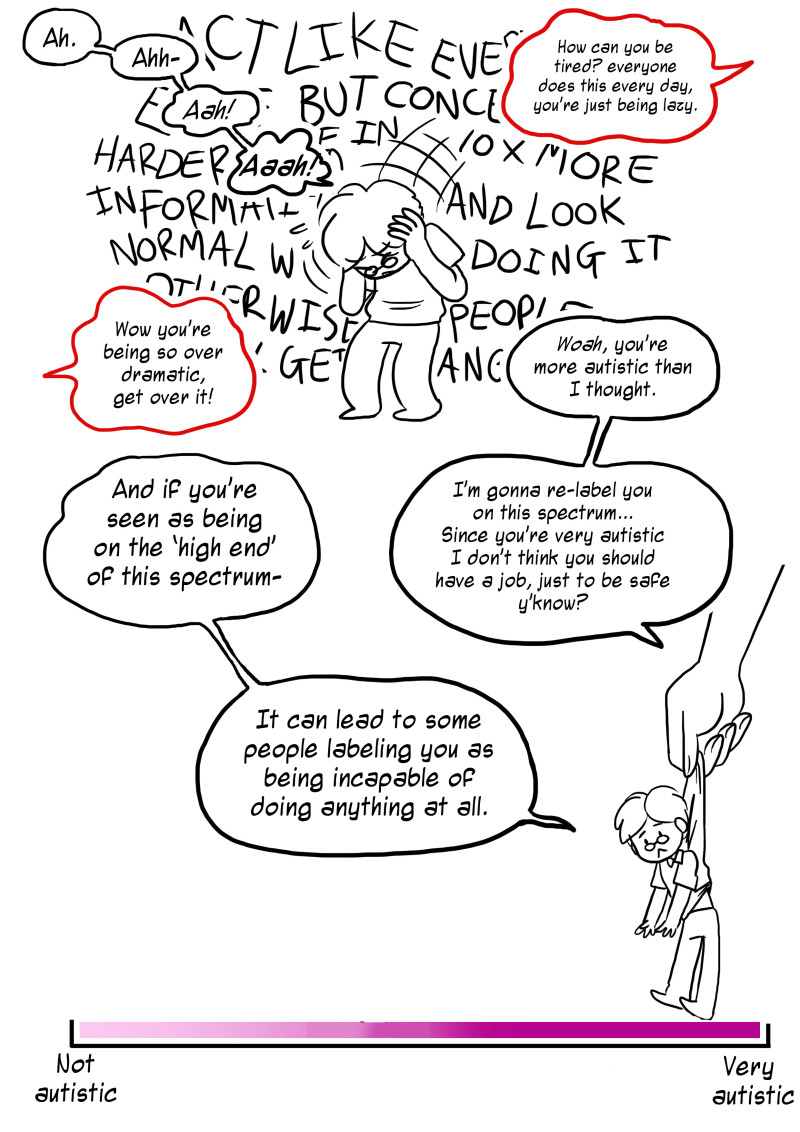 Ah.
Ahh-
Aah!
Aaah!
ACT LIKE
BUT
IN
HARDER 10 X MORE
AND LOOK
NORMAL DOING IT
GET
How can you be
tired? everyone
does this every day,
you're just being lazy.
Wow you're
being so over
dramatic,
get over it!
Woah, you're
more autistic than
I thought.
I'm gonna re-label you
on this spectrum...
Since you're very autistic
I don't think you should
have a job, just to be safe
y'know?
And if you're
seen as being
on the 'high end'
of this spectrum-
It can lead to some
people labeling you as
being incapable of
doing anything at all.
Not
autistic
Very
autistic